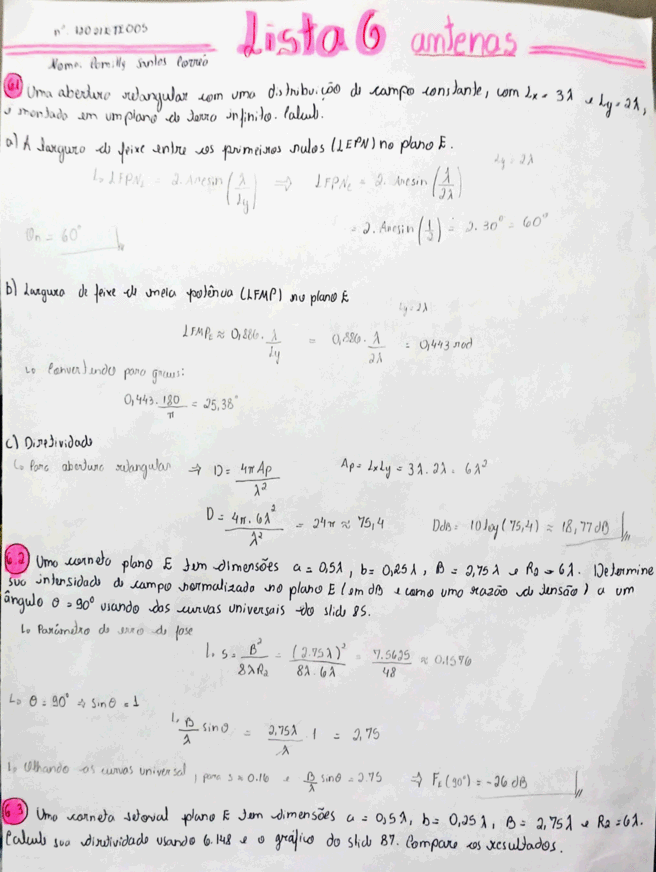 Lista 6 antenas
Nome: Santos
6.1 Uma abertura retangular com uma distribuição de campo constante, com Lx = 3λ e Ly = 2λ,
é montado em um plano de terra infinito. Calcule.
a) A largura de feixe entre os primeiros nulos (LFPN) no plano E.
Ly = 2λ
↳ LFPN_E = 2. Arcsin (λ/Ly) ⇒ LFPN_E = 2. Arcsin (λ/2λ)
= 2. Arcsin (1/2) = 2. 30° = 60°
θn = 60°
b) Largura de feixe de meia potência (LFMP) no plano E
Ly = 2λ
LFMP_E ≈ 0,886. λ/Ly = 0,886. λ/2λ = 0,443 rad
↳ Convertendo para graus:
0,443. 180/π = 25,38°
c) Diretividade
↳ Para abertura retangular ⇒ D = 4π Ap/λ² Ap = LxLy = 3λ. 2λ = 6λ²
D = 4π. 6λ²/λ² = 24π ≈ 75,4 DdB = 10 log (75,4) ≈ 18,77 dB
6.2 Uma corneta plano E tem dimensões a = 0,5λ, b = 0,25λ, B = 2,75λ e R2 = 6λ. Determine
sua intensidade de campo normalizado no plano E (em dB e como uma razão de tensão) a um
ângulo θ = 90° usando das curvas universais do slide 85.
↳ Parâmetro de erro de fase
↳ s = B²/8λR2 = (2.75λ)²/8λ. 6λ = 7.5625/48 ≈ 0.1576
↳ θ = 90° ⇒ sinθ = 1
↳ B/λ sinθ = 2,75λ/λ . 1 = 2,75
↳ Olhando as curvas universal, para s ≈ 0.16 e B/λ sinθ = 2.75 ⇒ F_E (90°) = -26 dB
6.3 Uma corneta setorial plano E tem dimensões a = 0,5λ, b = 0,25λ, B = 2,75λ e R2 = 6λ.
Calcule sua diretividade usando 6.148 e o gráfico do slide 87. Compare os resultados.